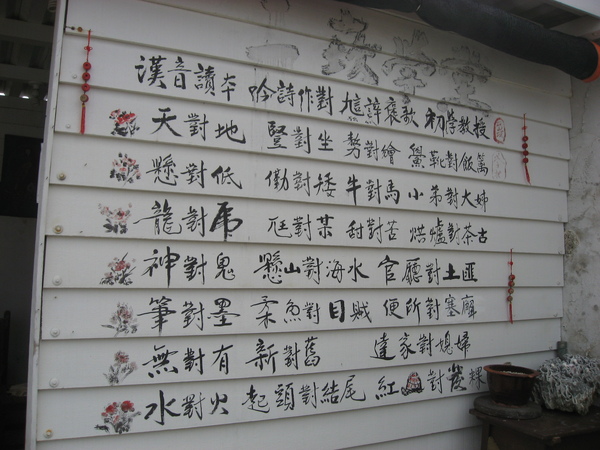 漢音讀本 吟詩作對 初學教授
天對地 豎對坐 對繪 對飯篱
懸對低 對矮 牛對馬 小弟對大姊
龍對虎 尪對某 甜對苦 烘爐對茶古
神對鬼 懸山對海水 官廳對土匪
筆對墨 柔魚對目賊 便所對塞廟
無對有 新對舊 達家對媳婦
水對火 起頭對結尾 紅龜對發粿